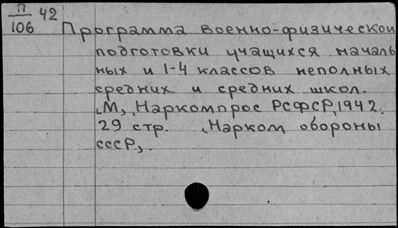 П 42
106
Программа военно-физической
подготовки учащихся началь
ных и 1-4 классов неполных
средних и средних школ.
М, Наркомпрос РСФСР, 1942.
29 стр. (Нарком обороны
СССР).